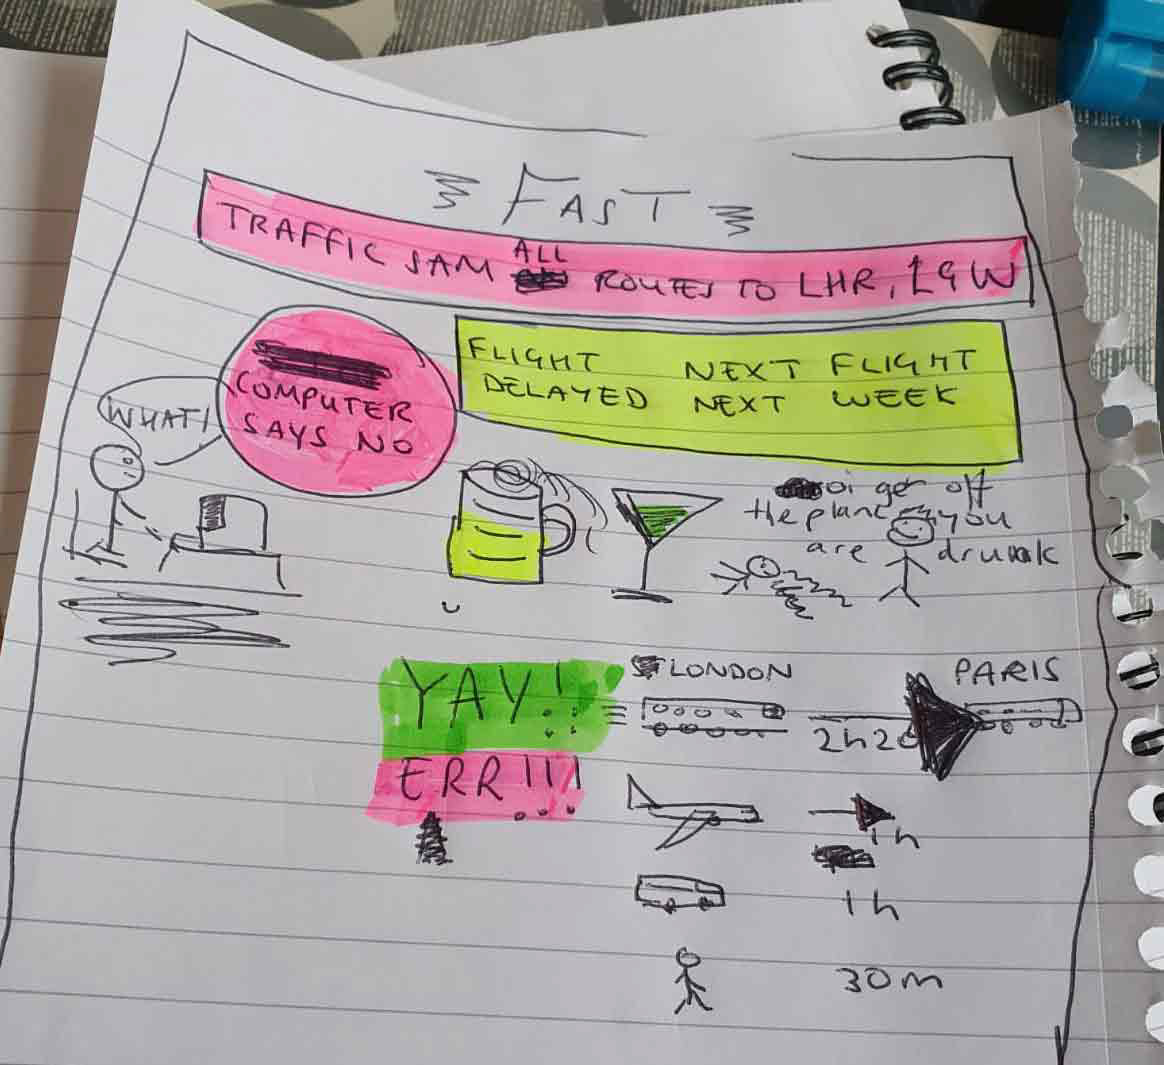 FAST
TRAFFIC JAM ALL ROUTES TO LHR, LGW
COMPUTER
SAYS NO
FLIGHT
DELAYED
NEXT FLIGHT
NEXT WEEK
WHAT!
oi get off
the plane you
are drunk
YAY!!
ERR!!!
LONDON
PARIS
2h20
1h
1h
30m